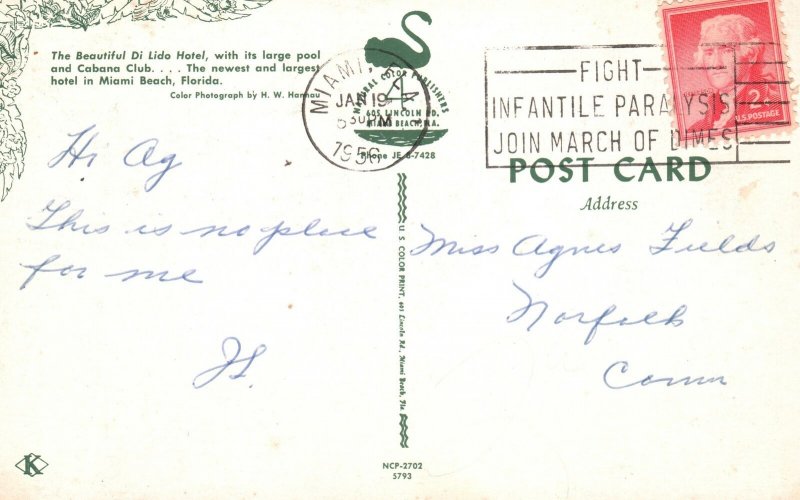 The Beautiful Di Lido Hotel, with its large pool
and Cabana Club. . . . The newest and largest
hotel in Miami Beach, Florida.
Color Photograph by H. W. Hannau
Hi Ag
This is no place
for me
JL.
K
NATURAL COLOR PUBLISHERS
605 LINCOLN RD.
MIAMI BEACH, FLA.
Phone JE 8-7428
MIAMI, FLA
JAN 19
5 30 PM
1956
U S COLOR PRINT, 605 Lincoln Rd., Miami Beach, Fla.
NCP-2702
5793
FIGHT
INFANTILE PARALYSIS
JOIN MARCH OF DIMES
2¢
U.S. POSTAGE
POST CARD
Address
Miss Agnes Fields
Norfolk
Conn